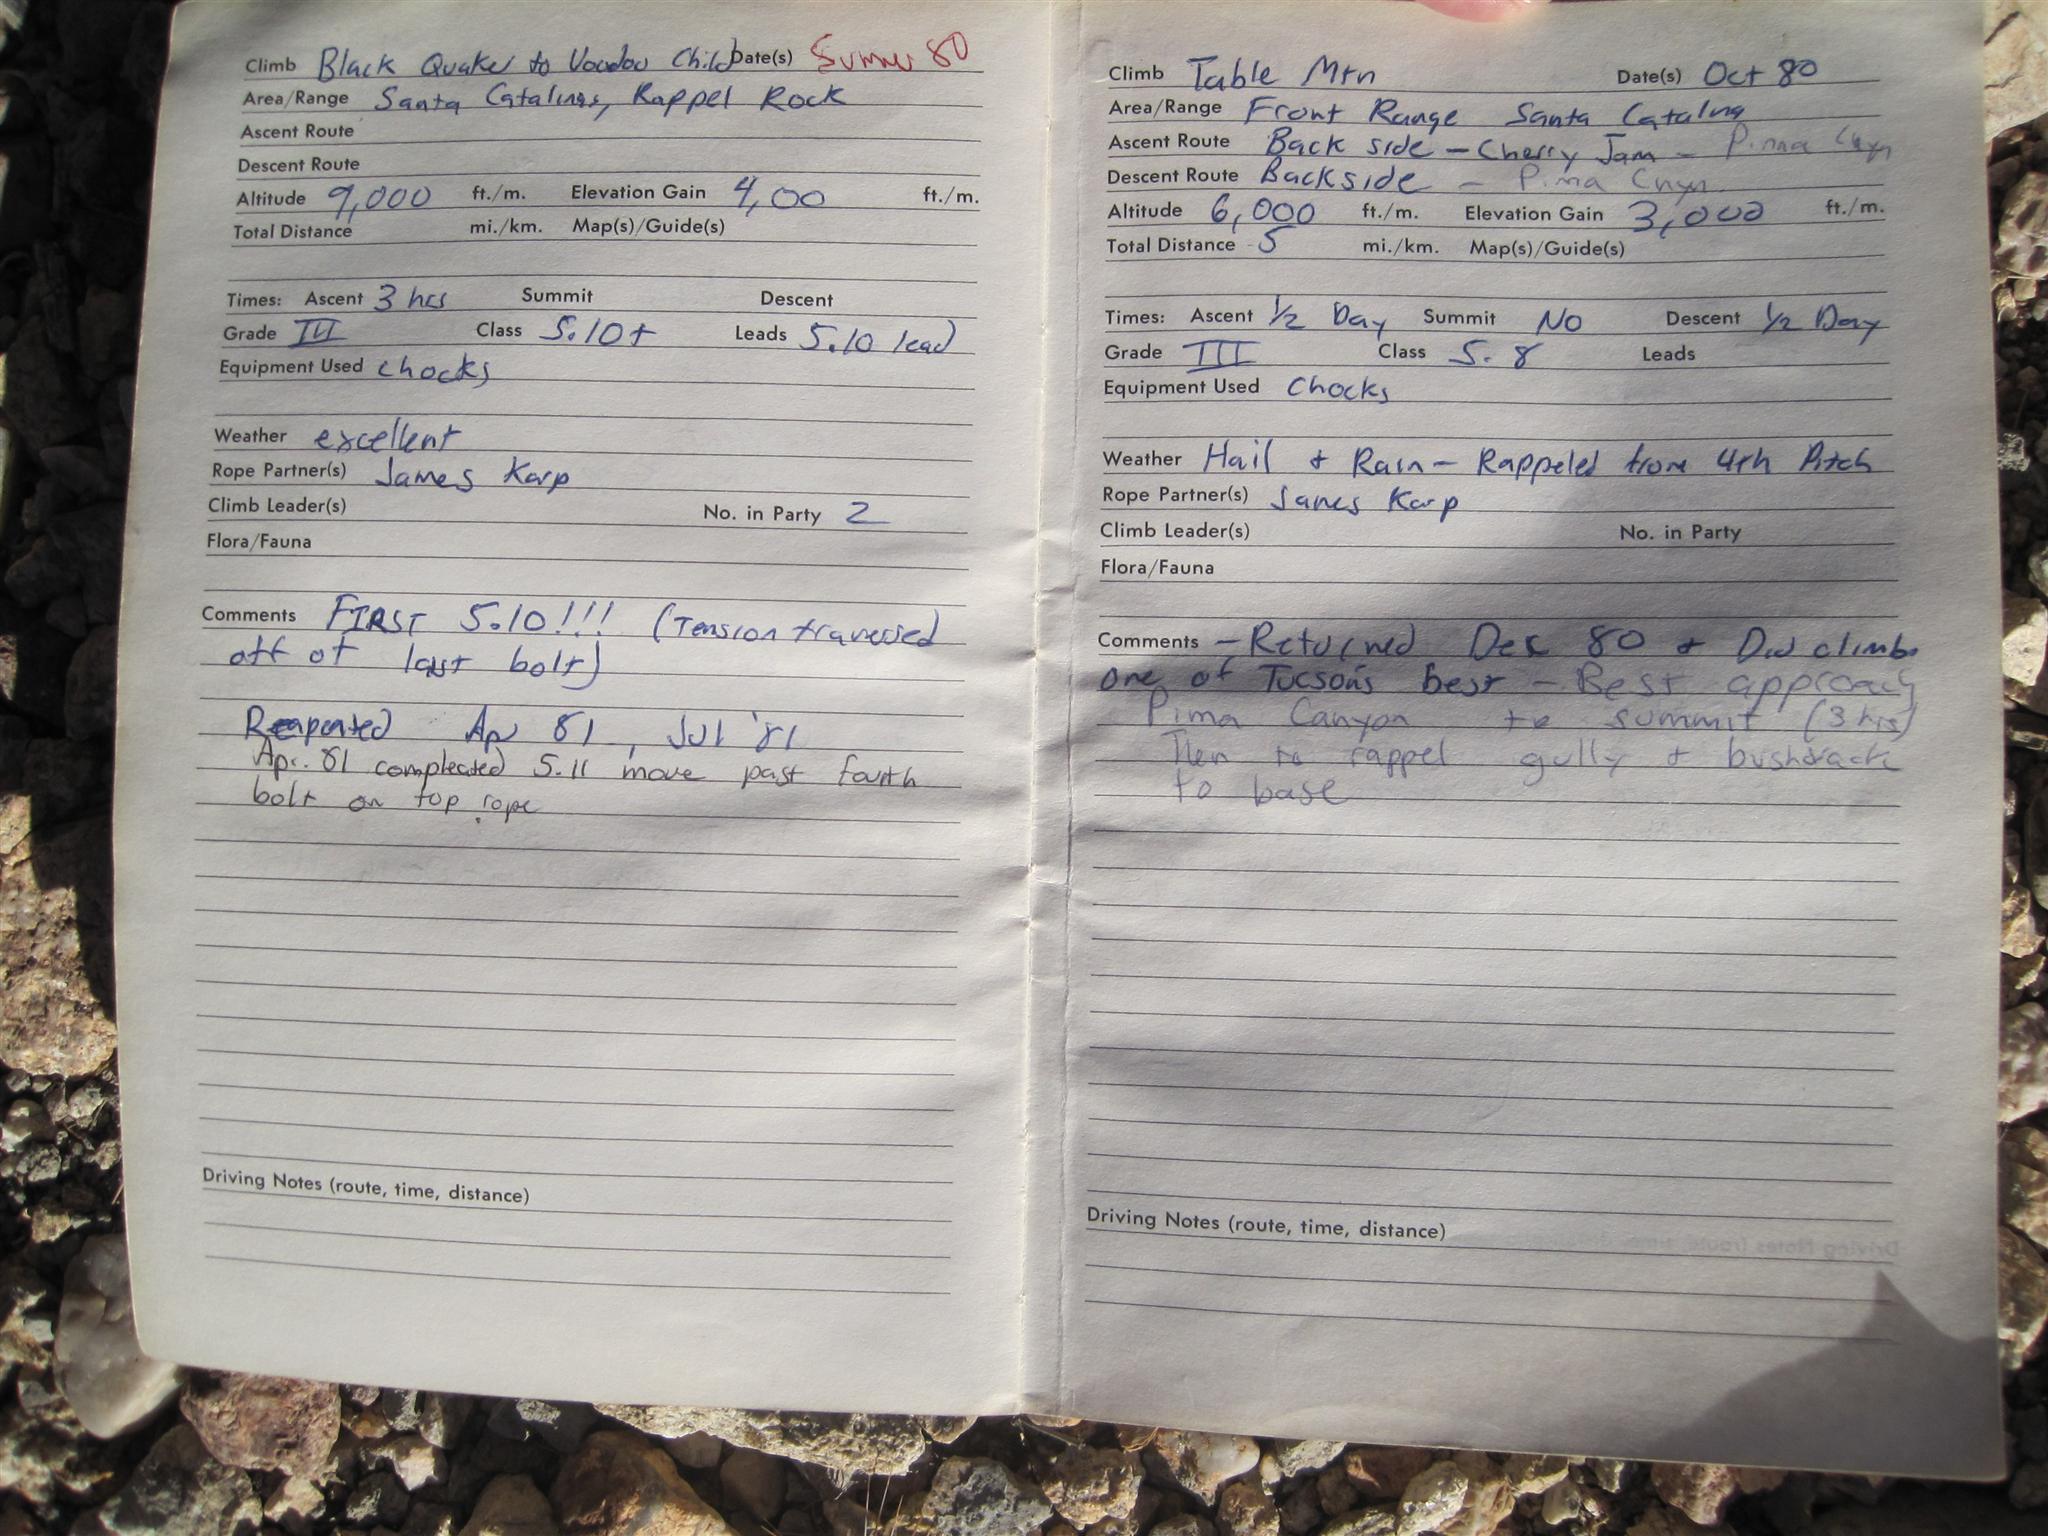 Climb Black Quaker to Voodou Child Date(s) Summer 80
Area/Range Santa Catalinas, Rappel Rock
Ascent Route
Descent Route
Altitude 9,000 ft./m. Elevation Gain 4,00 ft./m.
Total Distance mi./km. Map(s)/Guide(s)
Times: Ascent 3 hrs Summit Descent
Grade III Class 5.10+ Leads 5.10 lead
Equipment Used chocks
Weather excellent
Rope Partner(s) James Karp
Climb Leader(s) No. in Party 2
Flora/Fauna
Comments FIRST 5.10!!! (Tension traversed
off of last bolt)
Reapeated Apr 81, Jul '81
Apr. 81 compleated 5.11 move past fourth
bolt on top rope
Driving Notes (route, time, distance)
Climb Table Mtn Date(s) Oct 80
Area/Range Front Range Santa Catalina
Ascent Route Back side - Cherry Jam - Pima Cnyn
Descent Route Backside - Pima Cnyn.
Altitude 6,000 ft./m. Elevation Gain 3,000 ft./m.
Total Distance 5 mi./km. Map(s)/Guide(s)
Times: Ascent 1/2 Day Summit No Descent 1/2 Day
Grade III Class 5.8 Leads
Equipment Used Chocks
Weather Hail + Rain - Rappeled from 4th Pitch
Rope Partner(s) James Karp
Climb Leader(s) No. in Party
Flora/Fauna
Comments - Returned Dec 80 + Did climb
one of Tucson's best - Best approach
Pima Canyon to summit (3 hrs)
Then to rappel gully + bushwack
to base
Driving Notes (route, time, distance)